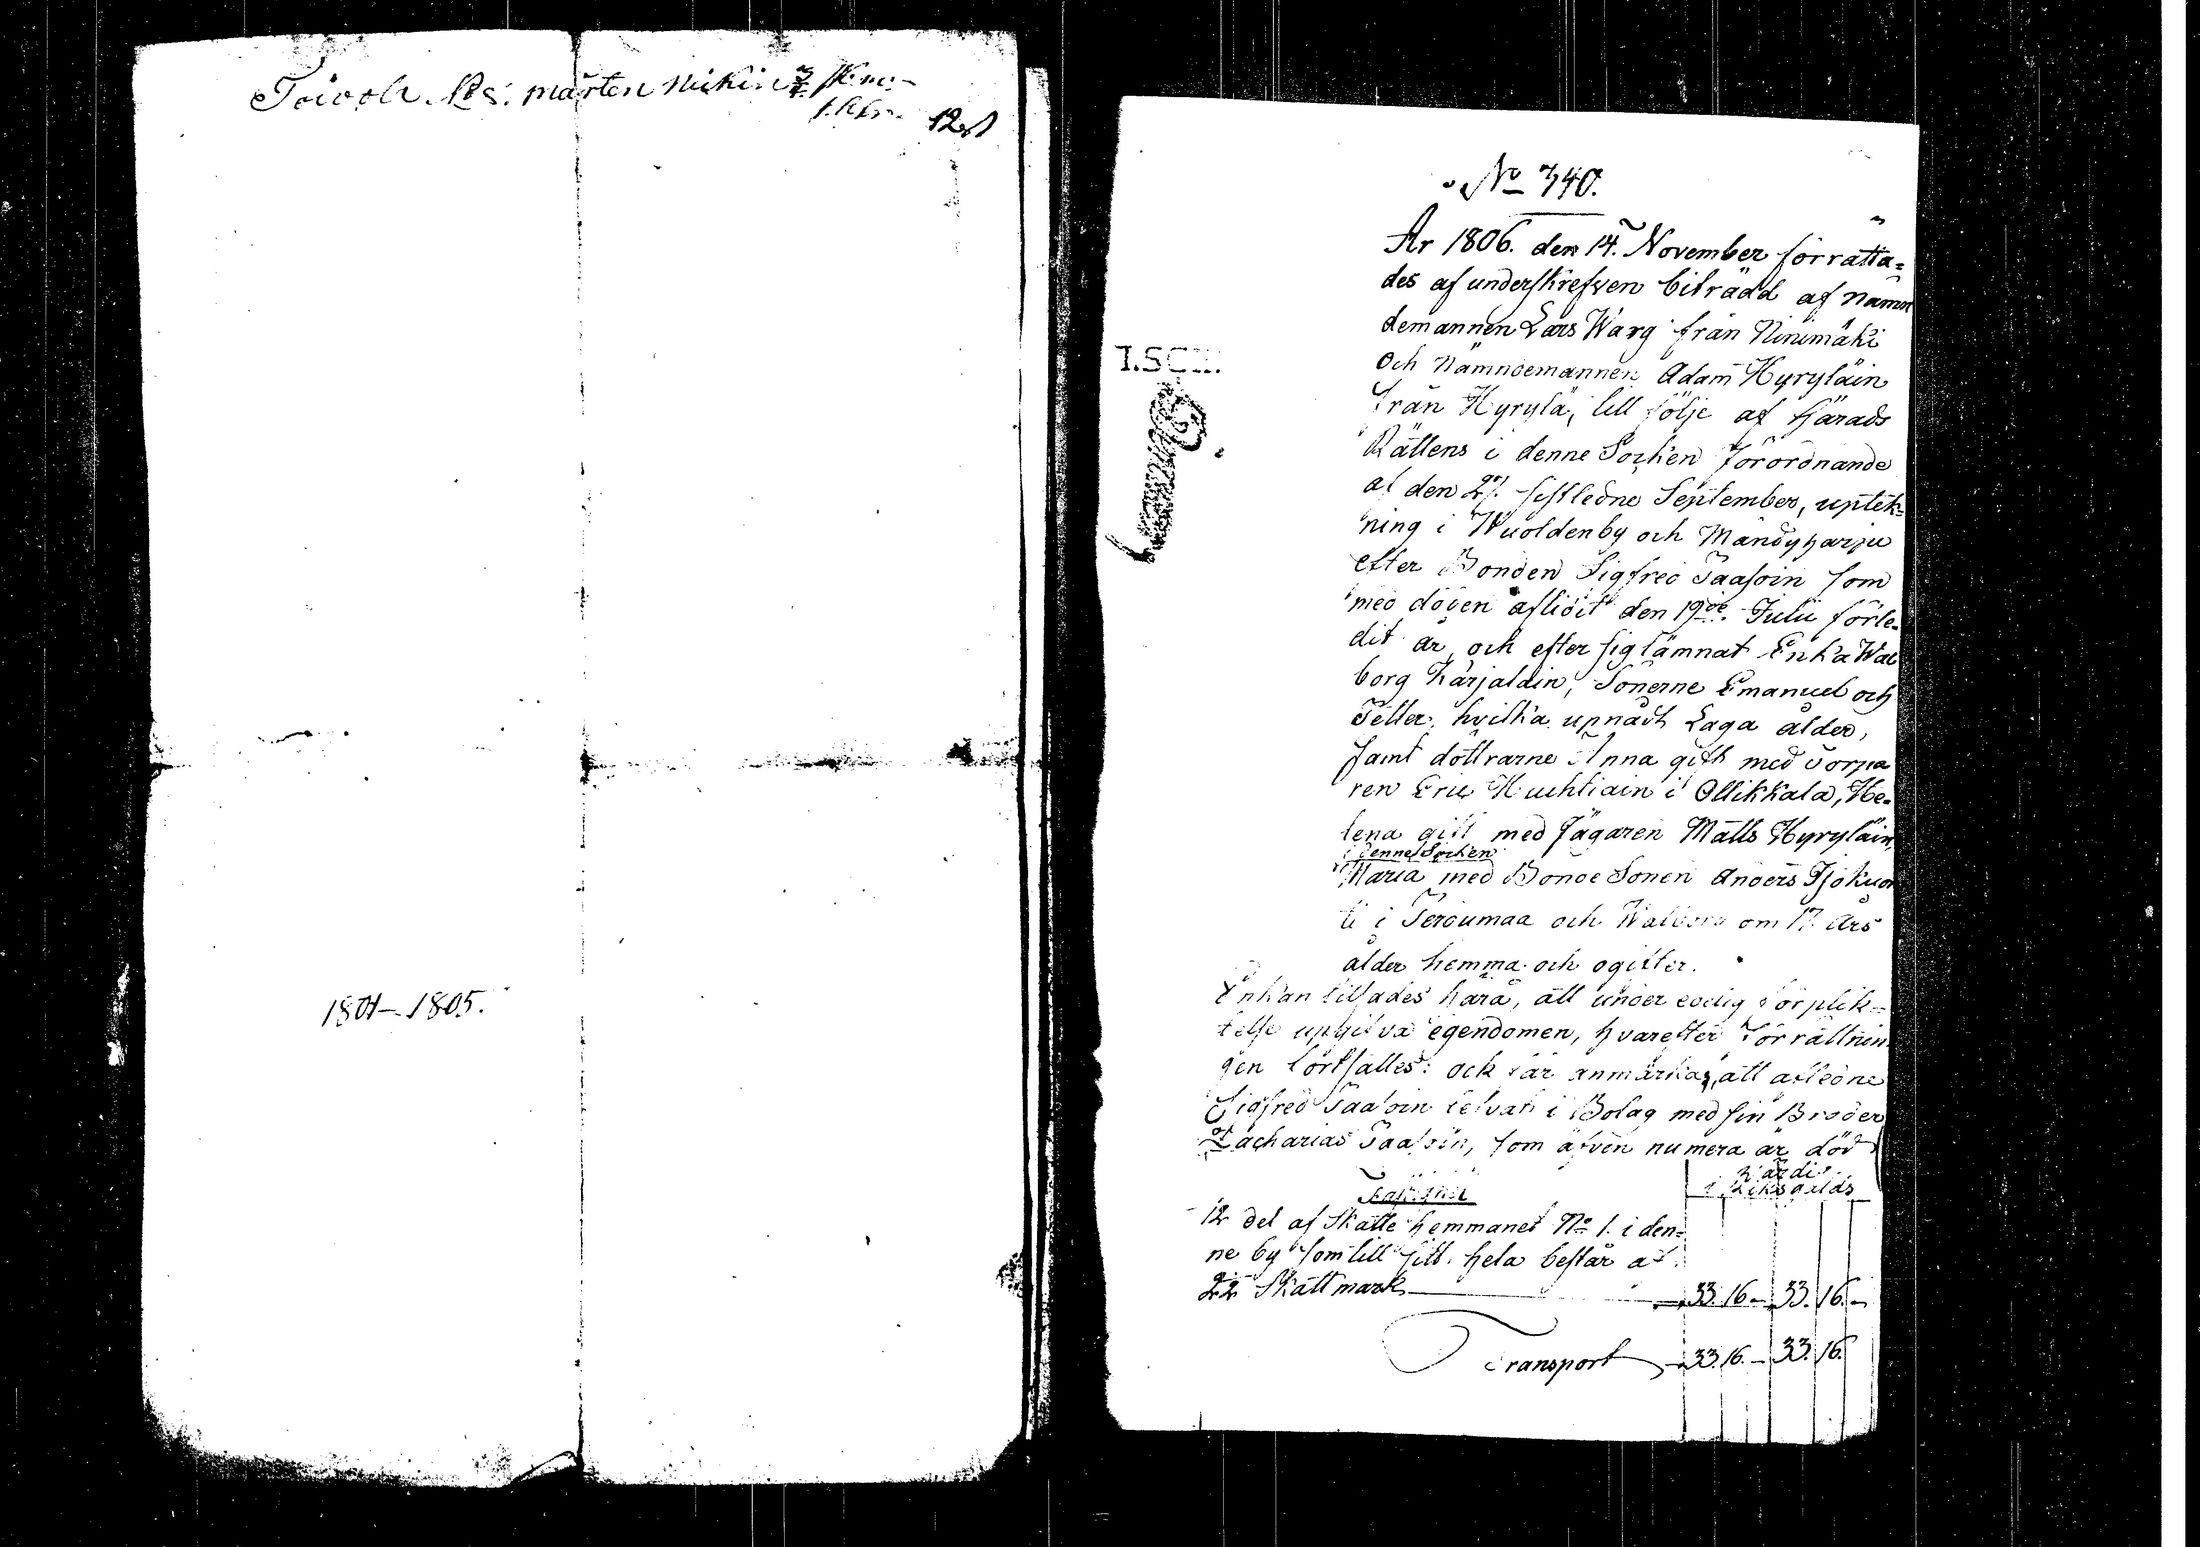 Toivola No 8. Mårten Mikin
12
1801–1805.
No 340.
År 1806. den 14. November förrätta=
des af underskrefven biträdd af Nämn
demannen Lars Warg från Ninimäki
och Nämndemannen Adam Hyryläin
från Hyrylä, till följe af Härads
Rättens i denne Sochen förordnande
af den 27. sistledne September, uptek=
ning i Wuoldenby och Mändyharju
efter Bonden Sigfred Taasoin som
med döden aflidit den 19de Julii förle=
dit år, och efter sig lämnat Enka Wal
borg Karjalain, Sönerne Emanuel och
Petter, hvilka upnådt Laga ålder,
samt döttrarne Anna gift med Torpa
ren Eric Huuhtiain i Ollikkala, He=
lena gift med Jägaren Matts Hyryläin,
i denne Sochen
Maria med Bonde Sonen Anders
ti i och Walborg om 17. Års
ålder hemma och ogifter.
Enkan tilsades håra, att under edelig förplik=
telse upgifva egendomen, hvarefter Förrättnin
gen fortsattes: ock bär anmärkas, att afledne
Sigfred Taasoin lefvat i Bolag med sin Broder
Zacharias Taasoin, som äfven numera är död
Värdi
i Riksgälds
12 del af Skatte hemmanet No 1. i den=
ne by som till sitt hela består af
Skattmark 33. 16 – 33. 16. –
Transport 33. 16. – 33. 16.